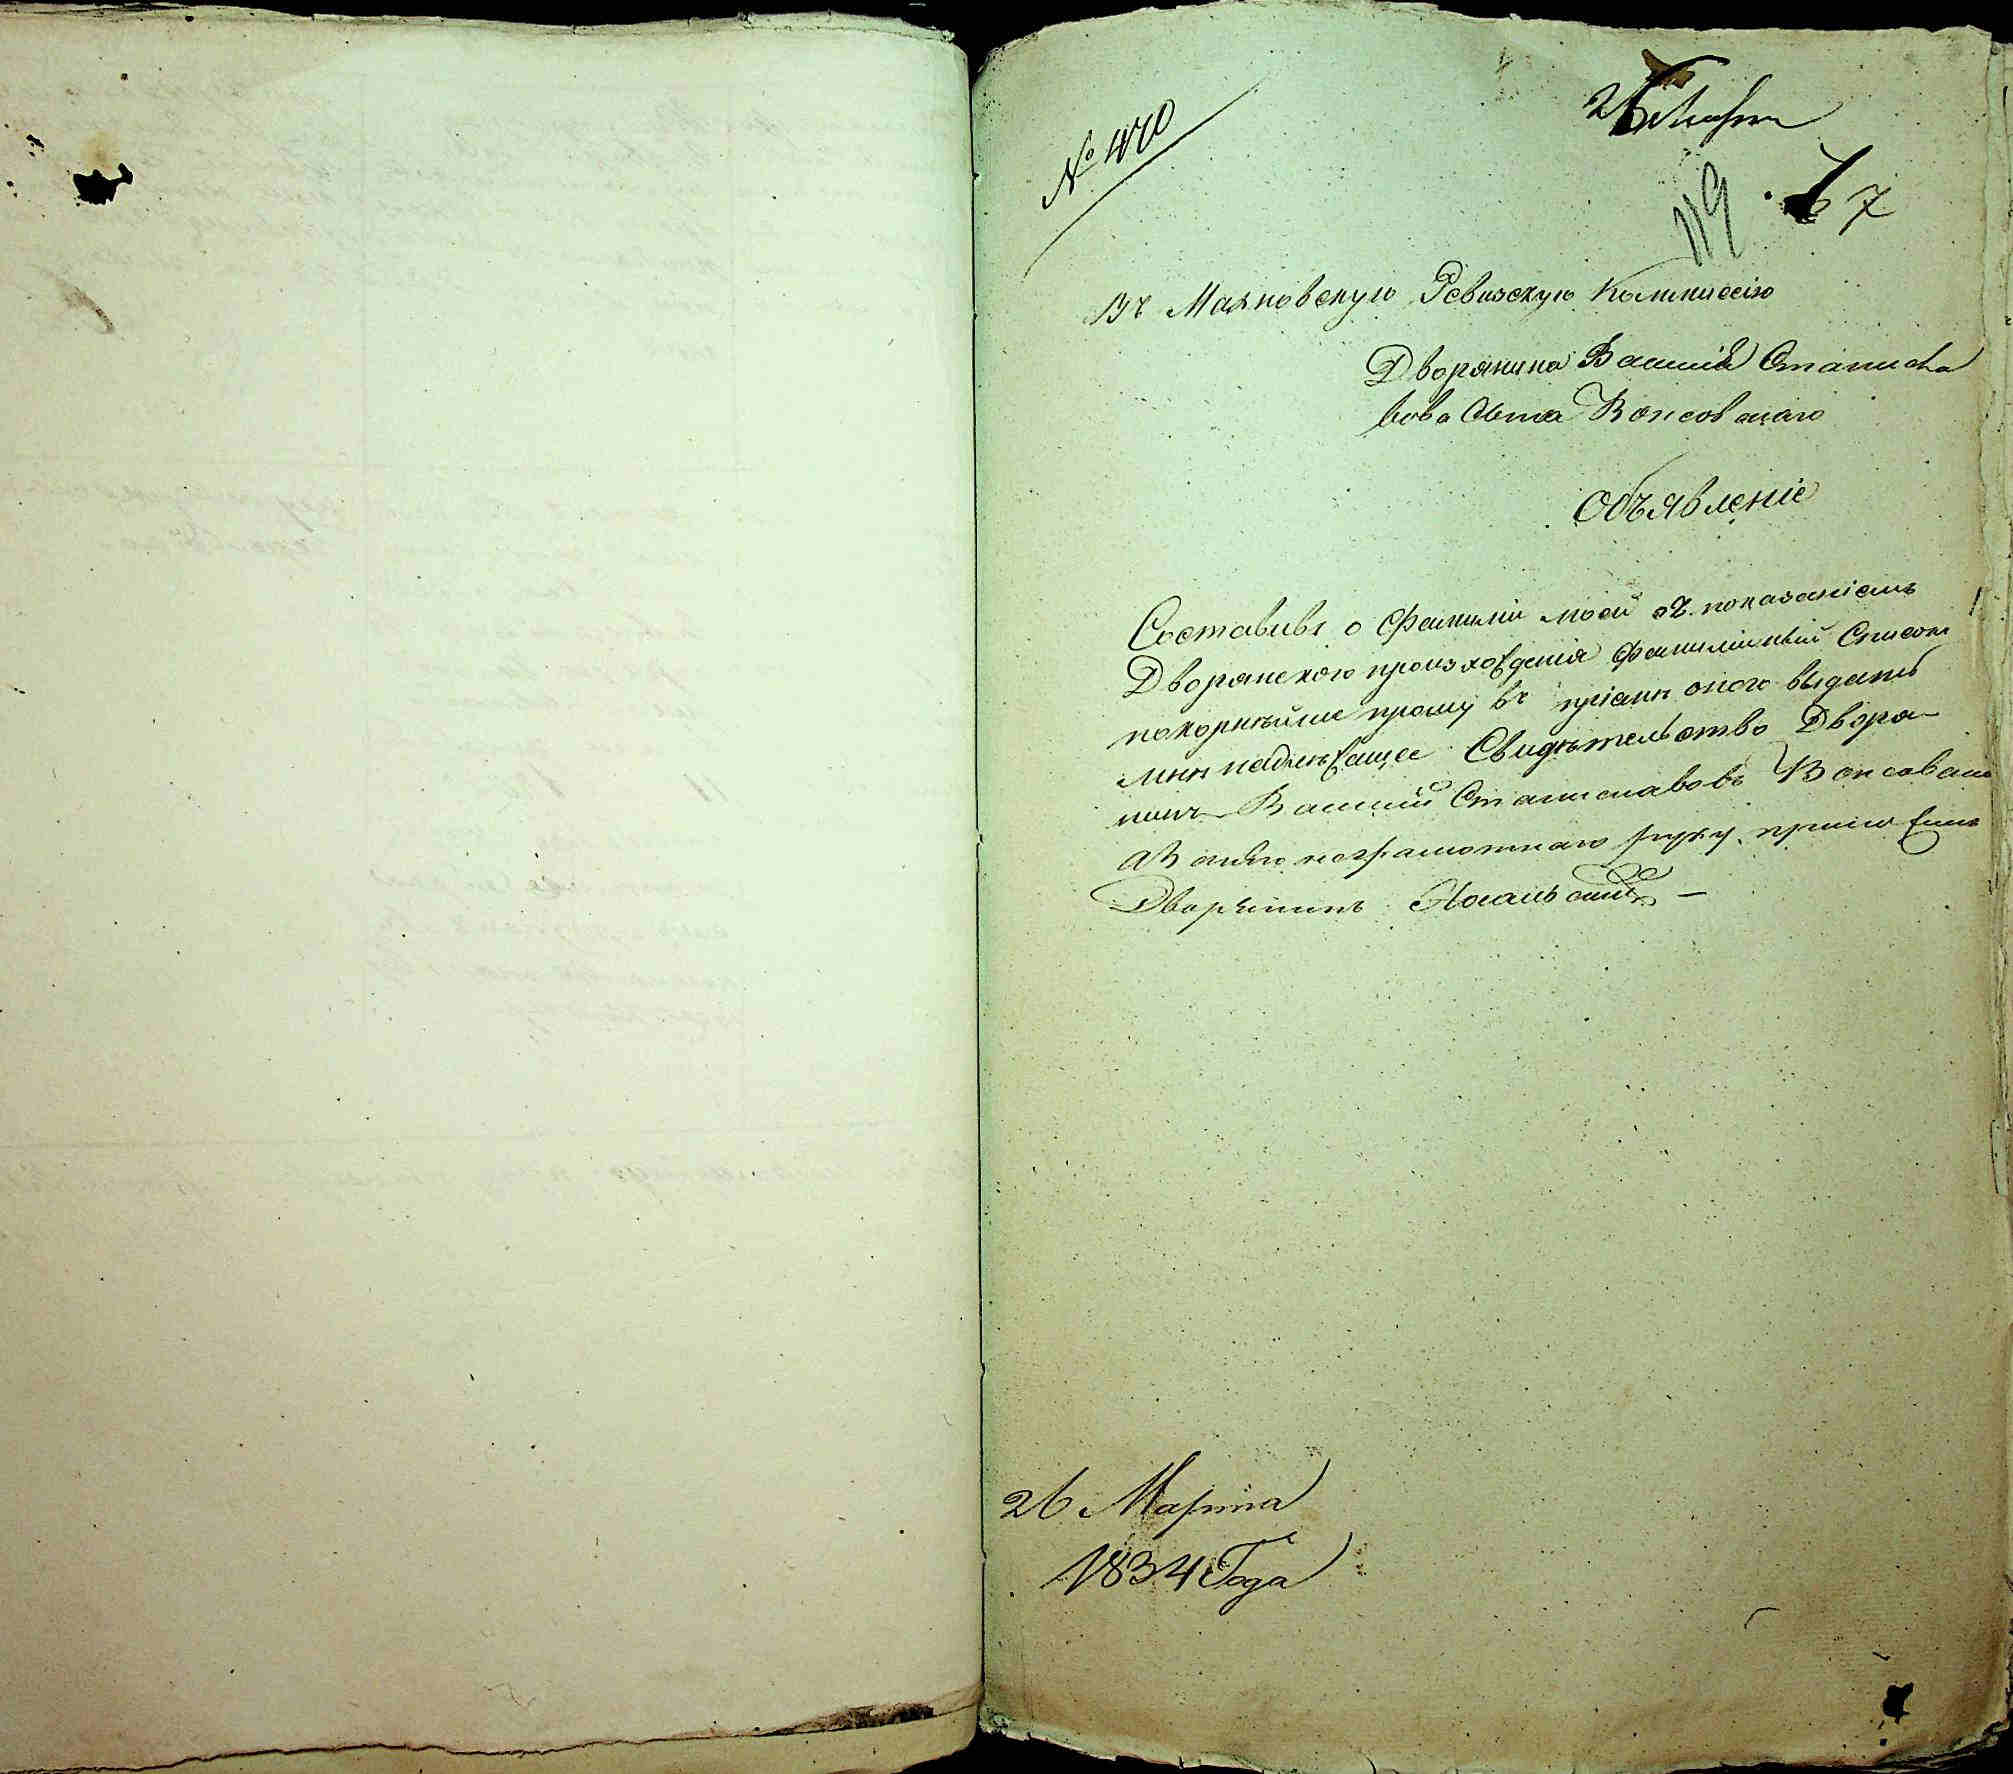 № 470
26 Марта
119
67
Въ Махновскую Ревизскую Коммиссію
Дворянина Василія Станисла
вова Сына Вонсовскаго
Объявленіе
Составивъ о Фамиліи моей съ показаніемъ
Дворянского происхожденія Фамилійный Списокъ
покорнѣйше прошу въ пріемѣ оного выдать
мнѣ надлежащее Свидѣтельство Дворя-
нинъ Василій Станиславовъ Вонсовскій
А за него неграмотнаго руку приложилъ
Дворянинъ
26 Марта
1834 Года